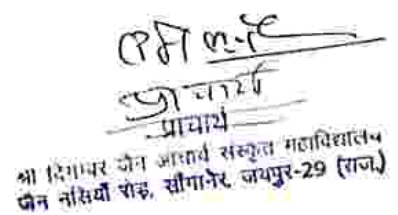 प्राचार्य
प्राचार्य
श्री दिगम्बर जैन आचार्य संस्कृत महाविद्यालय
जैन नसियाँ रोड़, साँगानेर, जयपुर-29 (राज.)